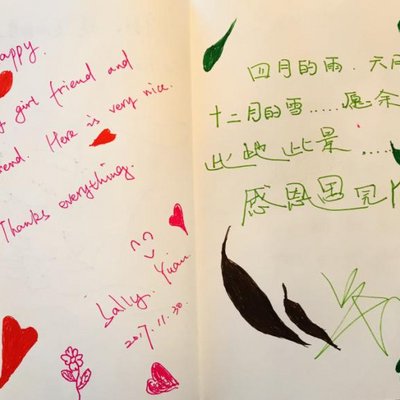 appy.
y girl friend and
end. Here is very nice.
Thanks everything.
Lally. Yuan
2017.11.30.
四月的雨. 六月
十二月的雪......愿余
此地 此景.....
感恩遇见